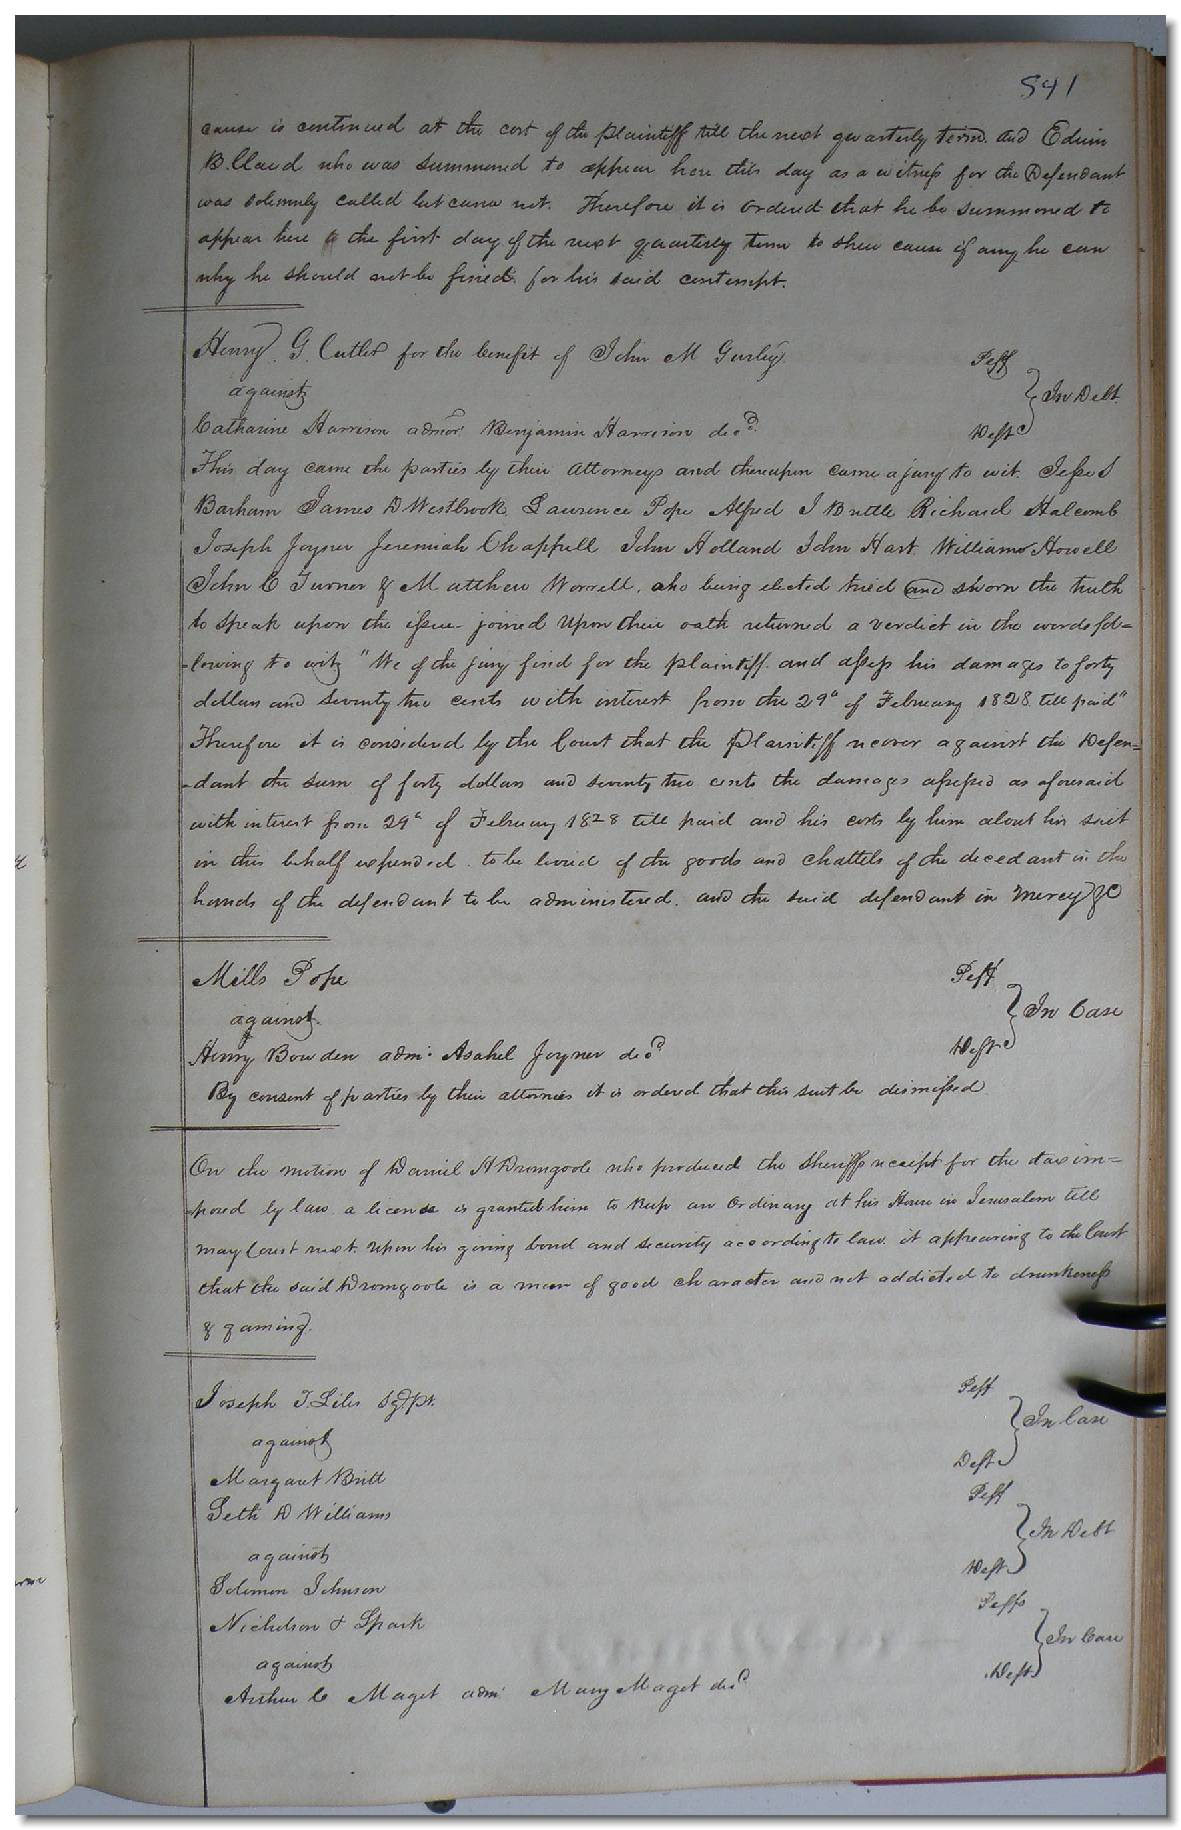 541
cause is continued at the cost of the plaintiff till the next quarterly term. and Edwin
B. Claud who was summoned to appear here this day as a witness for the Defendant
was solemnly called but came not. Therefore it is ordered that he be summoned to
appear here the first day of the next quarterly term to shew cause if any he can
why he should not be fined for his said contempt.
Henry G. Cutler for the benefit of John M Gurley Peff
against In Debt.
Catharine Harrison admor. Benjamin Harrison decd. Deft
This day came the parties by their attorneys and thereupon came a jury to wit. Jesse S
Barham James D Westbrook Lawrence Pope Alfred I Buttle Richard Halcomb
Joseph Joyner Jeremiah Chappell John Holland John Hart Williams Howell
John C Turner & Matthew Worrell. who being elected tried and sworn the truth
to speak upon the issue joined upon their oath returned a verdict in the words fol=
-lowing to wit "We of the jury find for the plaintiff. and assess his damages to forty
dollars and seventy two cents with interest from the 29th of February 1828 till paid"
Therefore it is considered by the Court that the plaintiff recover against the Defen=
-dant the sum of forty dollars and seventy two cents the damages assessed as aforesaid
with interest from 29th of February 1828 till paid and his costs by him about his suit
in this behalf expended. to be levied of the goods and chattels of the decedant in the
hands of the defendant to be administered. and the said defendant in mercy &C
Mills Pope Peff
against In Case
Henry Bowden admr. Asahel Joyner decd Deft
By consent of parties by their attornies it is ordered that this suit be dismissed
On the motion of Daniel H Dromgoole who produced the sheriffs receipt for the tax im=
-posed by law a license is granted him to keep an Ordinary at his House in Jerusalem till
may Court next. Upon his giving bond and security according to law. it appearing to the Court
that the said Dromgoole is a man of good character and not addicted to drunkeness
& gaming.
Joseph T. Liles Peff
against In Case
Margaret Britt Deft
Seth D Williams Peff
against In Debt
Solomon Johnson Deft
Nicholson & Spark Peffs
against In Case
Arthur C Maget admr Mary Maget decd Deft